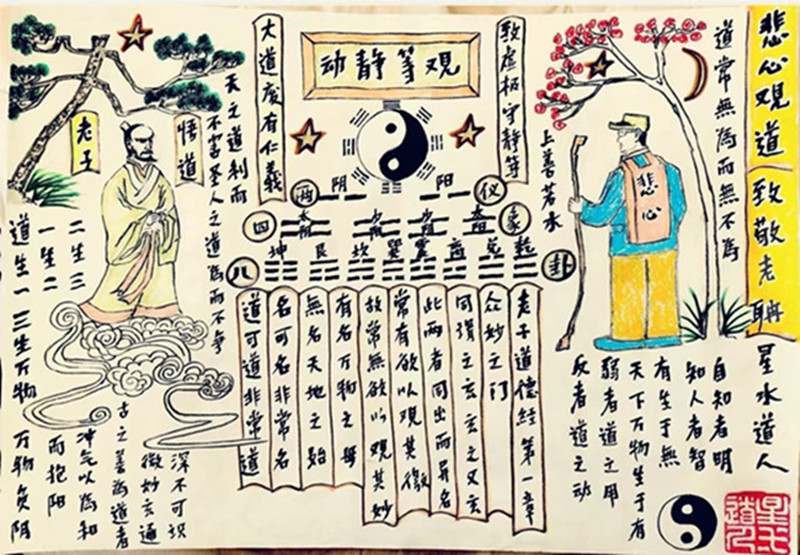 动静等观
悲心观道 致敬老聃
星水道人
道常無為而無不為
悲心
上善若水
致虚极守静笃
大道废有仁義
老子
悟道
天之道利而
不害聖人之道為而不争
两 阴 阳 仪
四 象
坤 艮 坎 巽 震 离 兑 乾
八 卦
道可道非常道
名可名非常名
無名天地之始
有名万物之母
故常無欲以观其妙
常有欲以观其徼
此两者同出而异名
同谓之玄玄之又玄
众妙之门
老子道德经第一章
道生一
一生二
二生三
三生万物
万物负阴
而抱阳
冲气以為和
古之善為道者
微妙玄通
深不可识
反者道之动
弱者道之用
天下万物生于有
有生于無
知人者智
自知者明